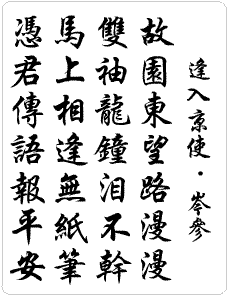 逢入京使·岑參
故園東望路漫漫
雙袖龍鐘泪不幹
馬上相逢無紙筆
憑君傳語報平安